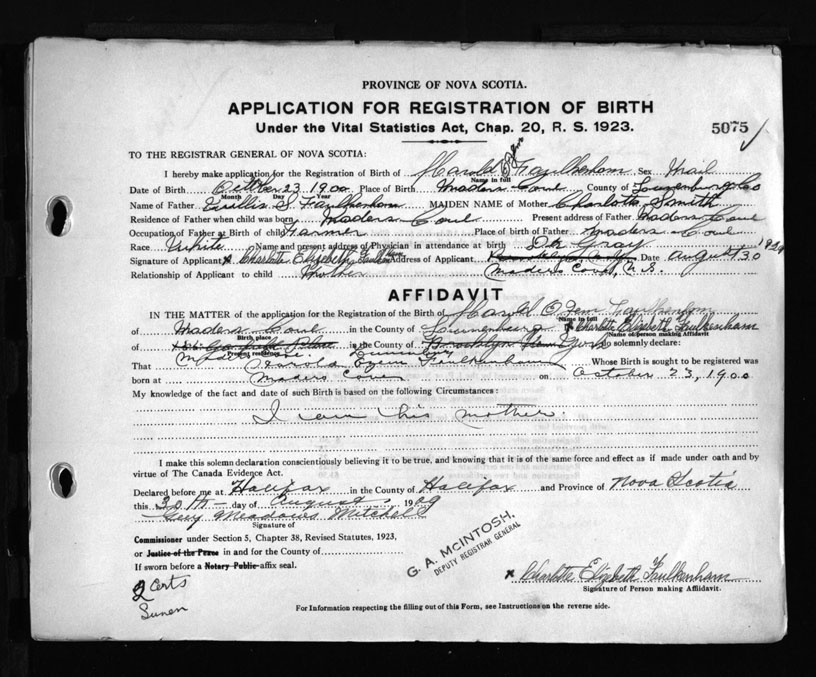 PROVINCE OF NOVA SCOTIA.
APPLICATION FOR REGISTRATION OF BIRTH
Under the Vital Statistics Act, Chap. 20, R. S. 1923.
5075
TO THE REGISTRAR GENERAL OF NOVA SCOTIA:
I hereby make application for the Registration of Birth of Harold Faulkenham Sex Mail
Name in full
Date of Birth October 23 1900 Place of Birth Maders Cove County of Lunenburg Co
Month Day Year
Name of Father S. Faulkenham MAIDEN NAME of Mother Charlotte Smith
Residence of Father when child was born Maders Cove Present address of Father Maders Cove
Occupation of Father at Birth of child Farmer Place of birth of Father Maders Cove
Race White Name and present address of Physician in attendance at birth Dr Gray 1929
Signature of Applicant x Charlotte Elizabeth Faulkenham Address of Applicant Date August 30
Relationship of Applicant to child Mother Maders Cove, N.S.
AFFIDAVIT
IN THE MATTER of the application for the Registration of the Birth of Harold Faulkenham
Name in full
of Maders Cove in the County of Lunenburg x Charlotte Elizabeth Faulkenham
Birth place Name of person making Affidavit
of in the County of do solemnly declare:
Present residence
That Harold Faulkenham Whose Birth is sought to be registered was
born at Maders Cove on October 23, 1900
My knowledge of the fact and date of such Birth is based on the following Circumstances:
I am his mother.
I make this solemn declaration conscientiously believing it to be true, and knowing that it is of the same force and effect as if made under oath and by
virtue of The Canada Evidence Act.
Declared before me at Halifax in the County of Halifax and Province of Nova Scotia
this 30th day of August 1929
Guy Meadows Mitchell
Signature of
Commissioner under Section 5, Chapter 38, Revised Statutes, 1923,
or Justice of the Peace in and for the County of
If sworn before a Notary Public affix seal.
G. A. MCINTOSH,
DEPUTY REGISTRAR GENERAL
x Charlotte Elizabeth Faulkenham
Signature of Person making Affidavit.
2 Certs
For Information respecting the filling out of this Form, see Instructions on the reverse side.